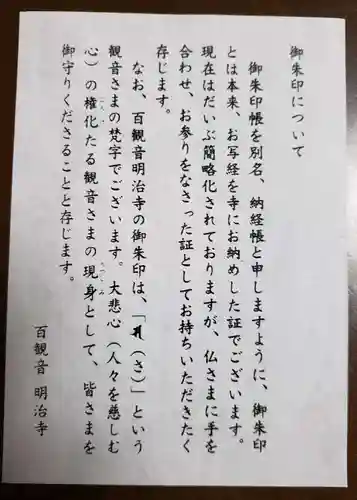 御朱印について
御朱印帳を別名、納経帳と申しますように、御朱印
とは本来、お写経を寺にお納めした証でございます。
現在はだいぶ簡略化されておりますが、仏さまに手を
合わせ、お参りをなさった証としてお持ちいただきたく
存じます。
なお、百観音明治寺の御朱印は、「 (さ)」という
観音さまの梵字でございます。大悲心(人々を慈しむ
心)の権化たる観音さまの現身として、皆さまを
御守りくださることと存じます。
百観音 明治寺